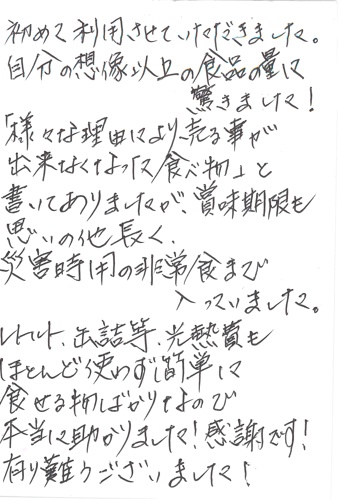 初めて利用させていただきました。
自分の想像以上の食品の量に
驚きました!
「様々な理由により、売る事が
出来なくなった食べ物」と
書いてありましたが、賞味期限も
思いの他長く、
災害時用の非常食まで
入っていました。
レトルト、缶詰等、光熱費も
ほとんど使わず簡単に
食せる物ばかりなので
本当に助かりました!感謝です!
有り難うございました!